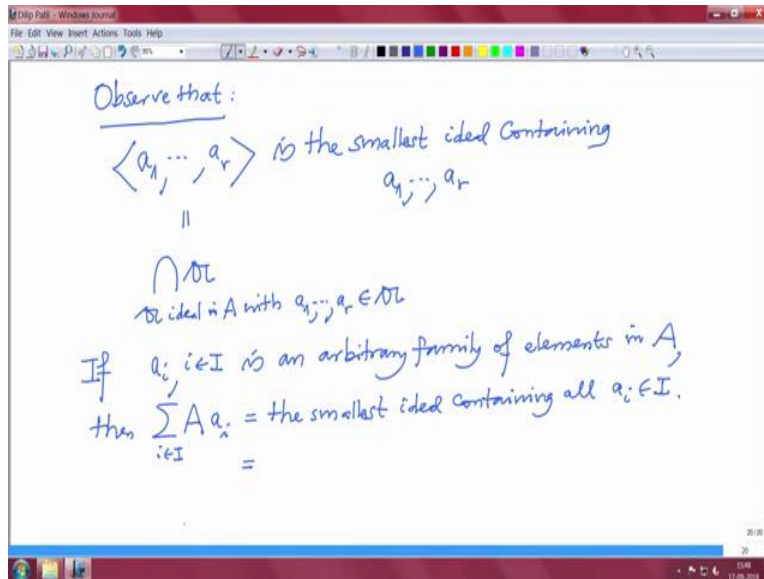 Dilip Patil - Windows Journal
File Edit View Insert Actions Tools Help
Observe that :
⟨a₁, ⋯, aᵣ⟩ is the smallest ideal Containing
a₁, ⋯, aᵣ
||
⋂ 𝔞
𝔞 ideal in A with a₁, ⋯, aᵣ ∈ 𝔞
If aᵢ, i∈I is an arbitrary family of elements in A,
then ∑ A aᵢ = the smallest ideal containing all aᵢ ∈ I.
i∈I
=
20/20
20
15:48
17-06-2015